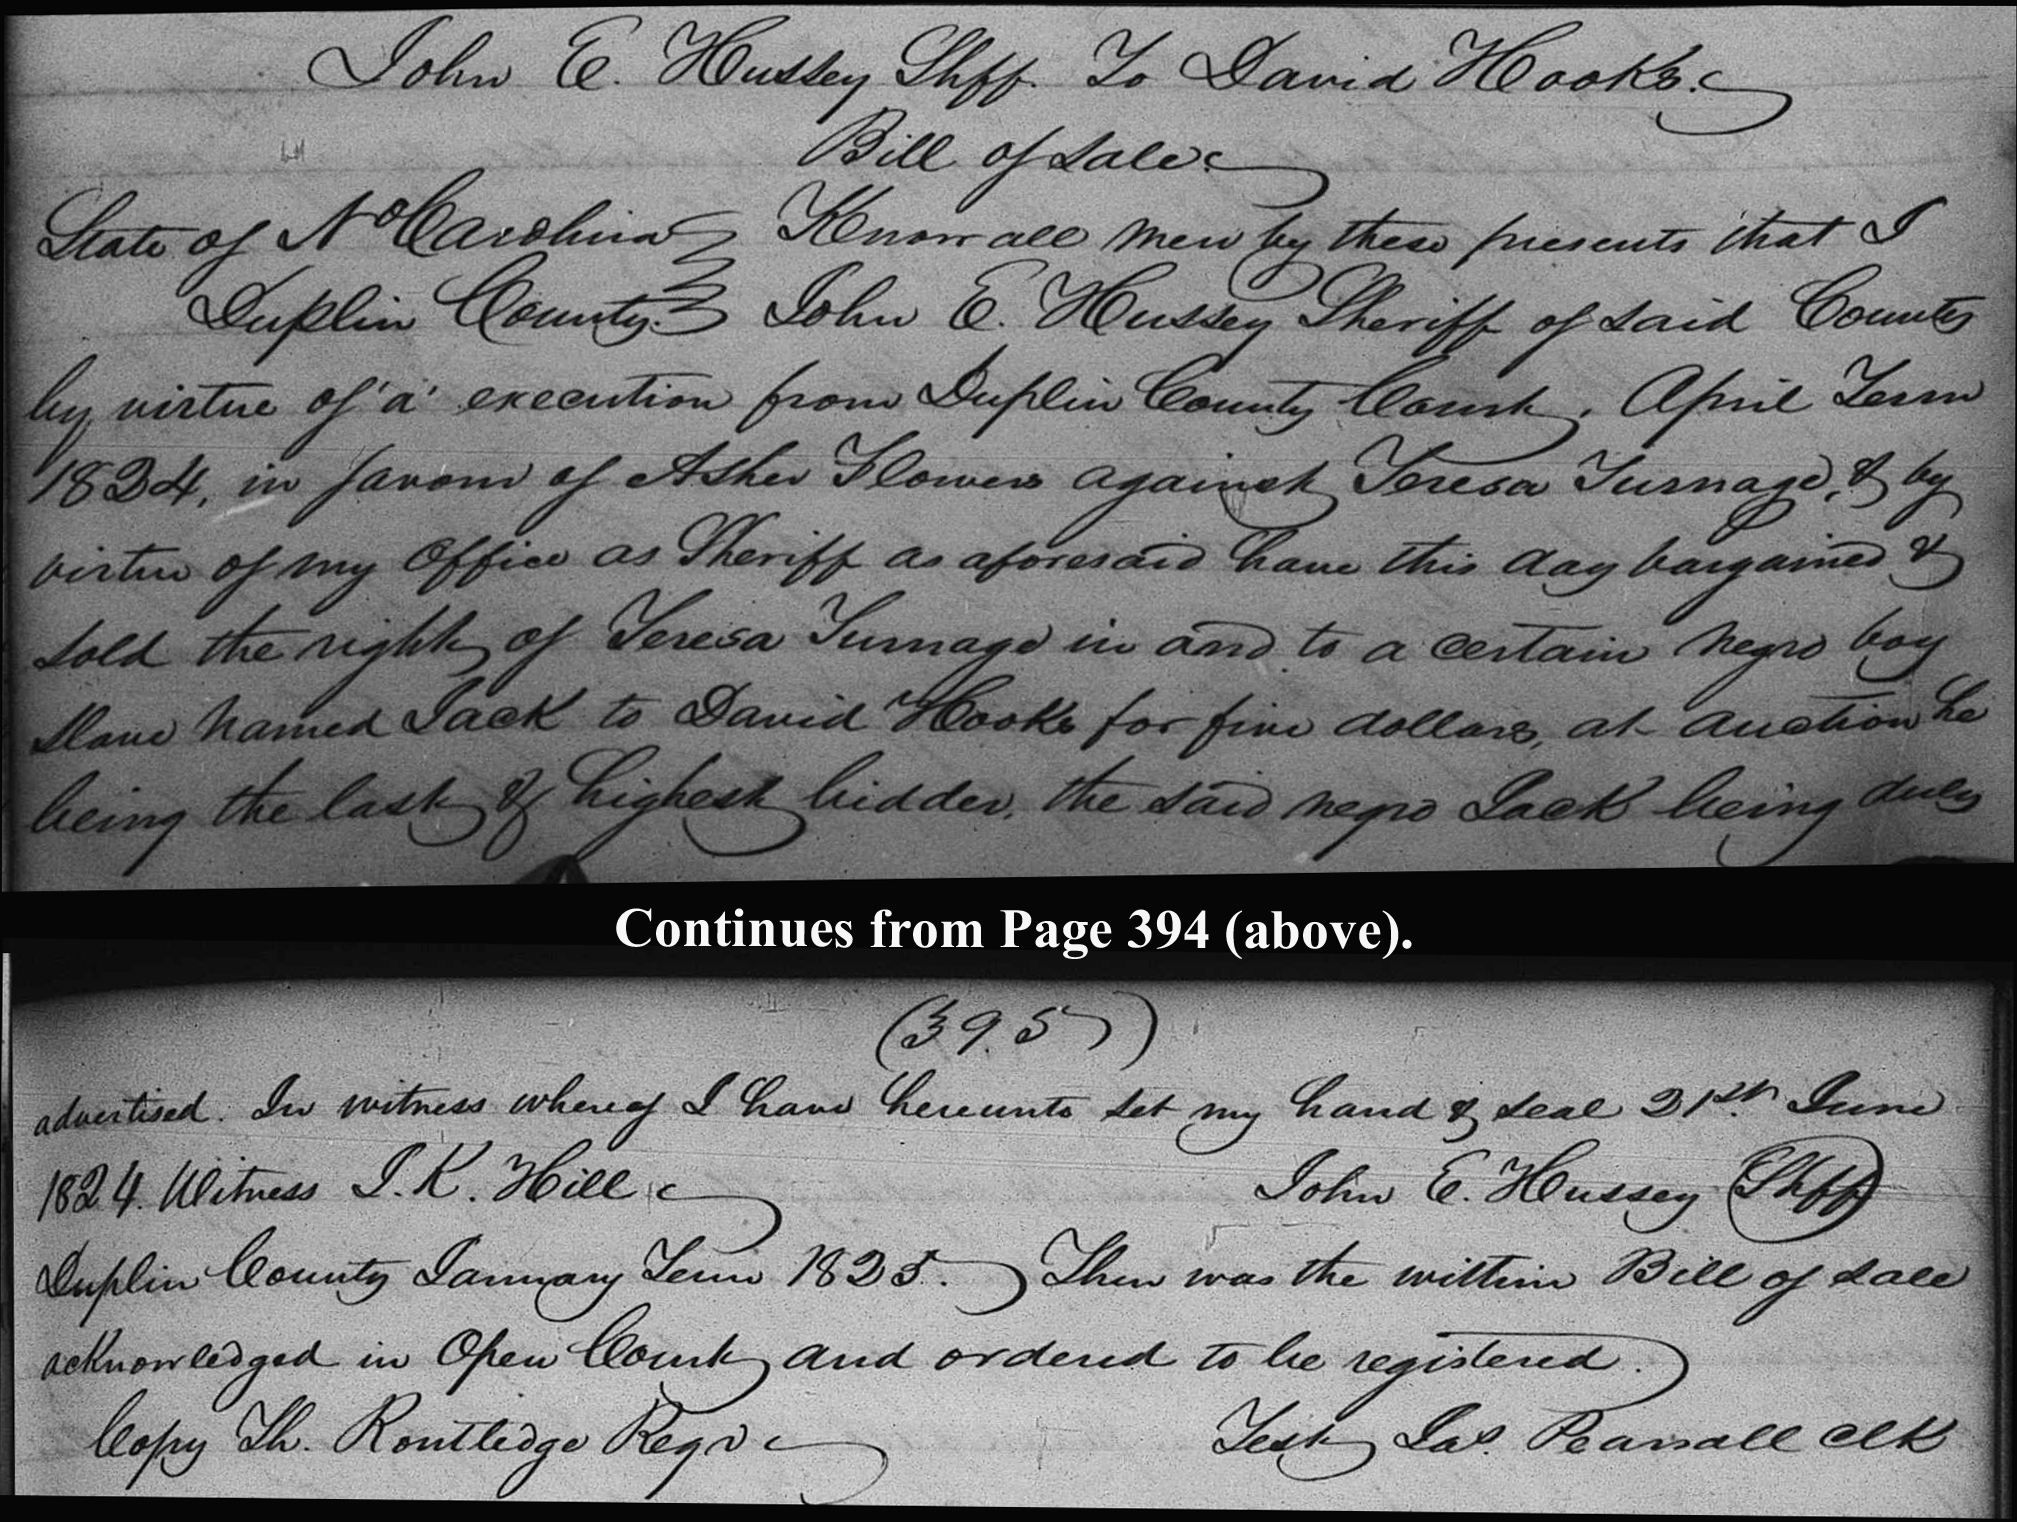 John E. Hussey Shff. To David Hooks.
Bill of Sale.
State of No Carolina Know all men by these presents that I
Duplin County. John E. Hussey Sheriff of said County
by virtue of 'a' execution from Duplin County Court, April Term
1824, in favour of Asher Flowers against Teresa Turnage, & by
virtue of my Office as Sheriff as aforesaid have this day bargained &
sold the right of Teresa Turnage in and to a certain negro boy
slave named Jack to David Hooks for five dollars, at auction he
being the last & highest bidder, the said negro Jack being duly
Continues from Page 394 (above).
(395)
advertised. In witness whereof I have hereunto set my hand & seal 21st. June
1824. Witness J. K. Hill John E. Hussey Shff
Duplin County January Term 1825. Then was the within Bill of sale
acknowledged in Open Court and ordered to be registered.
Copy Th. Routledge Regr Test Jas. Pearsall Clk